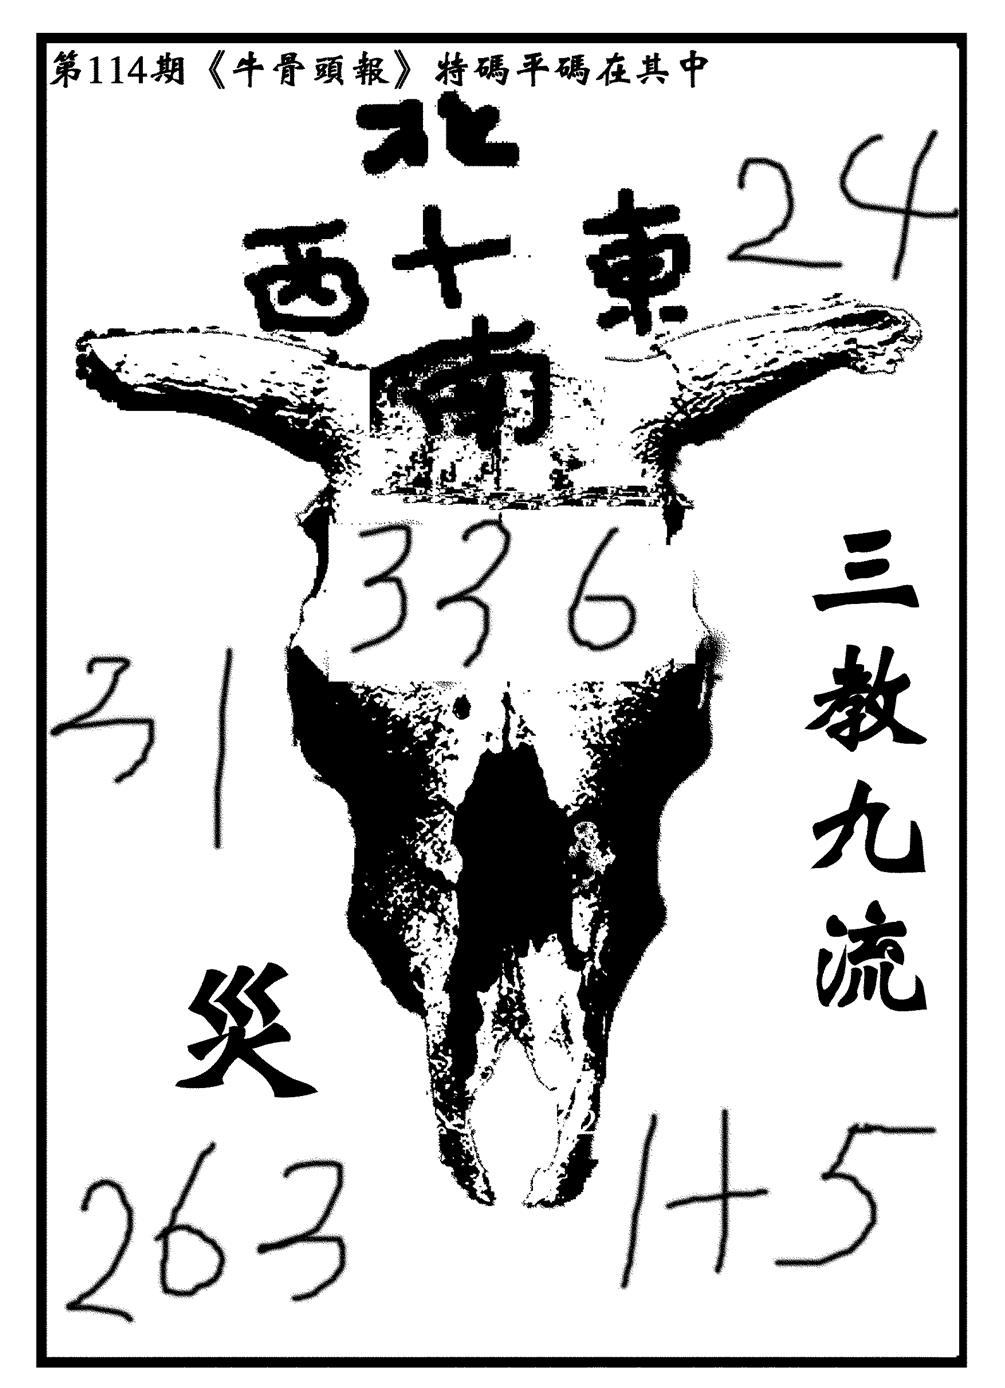 第114期《牛骨頭報》特碼平碼在其中
北
24
西十東
南
336
31
三教九流
災
263
1+5